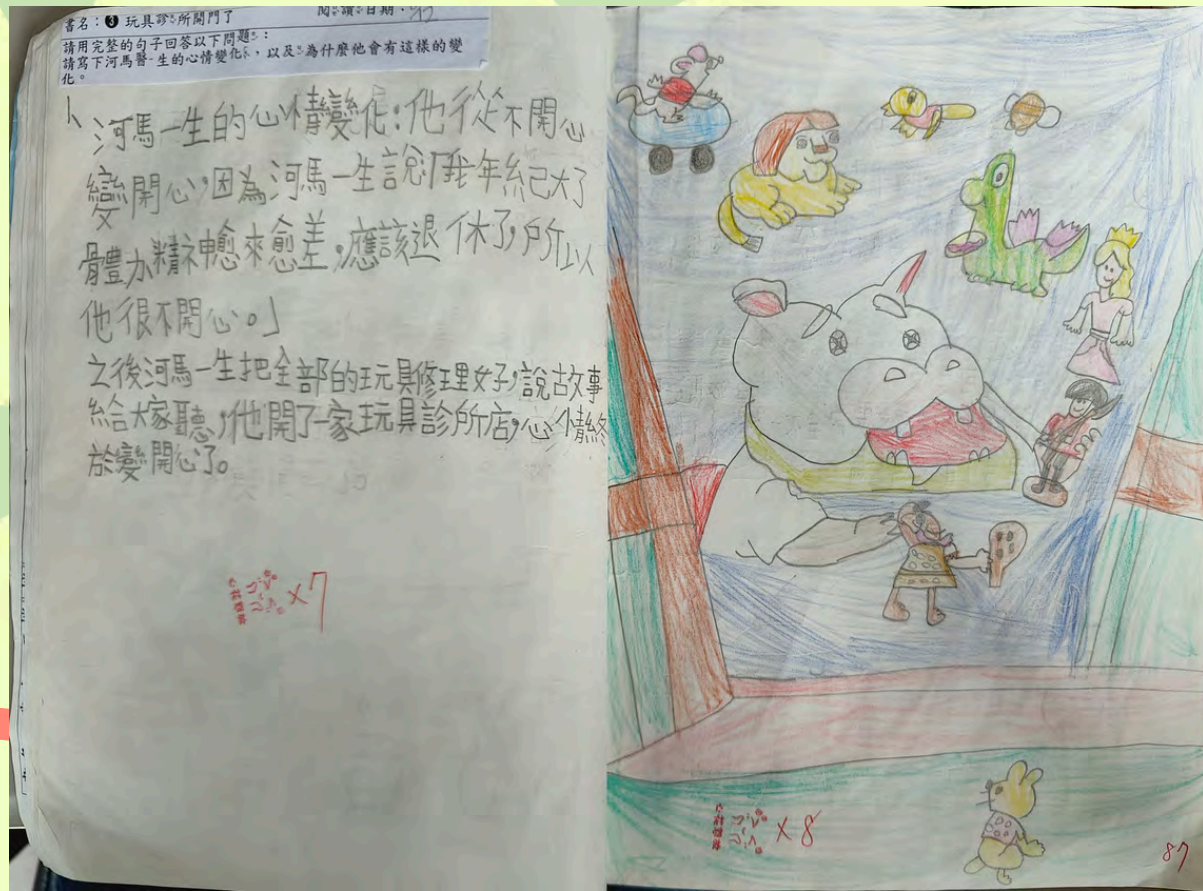 書名：❸ 玩具診所開門了
閱讀日期：
請用完整的句子回答以下問題：
請寫下河馬醫生的心情變化，以及為什麼他會有這樣的變
化。
1、河馬一生的心情變化：他從不開心
變開心，因為河馬一生說「我年紀大了
體力精神愈來愈差，應該退休了，所以
他很不開心。」
之後河馬一生把全部的玩具修理好，說故事
給大家聽，他開了一家玩具診所店，心情終
於變開心了。
×7
×8
87